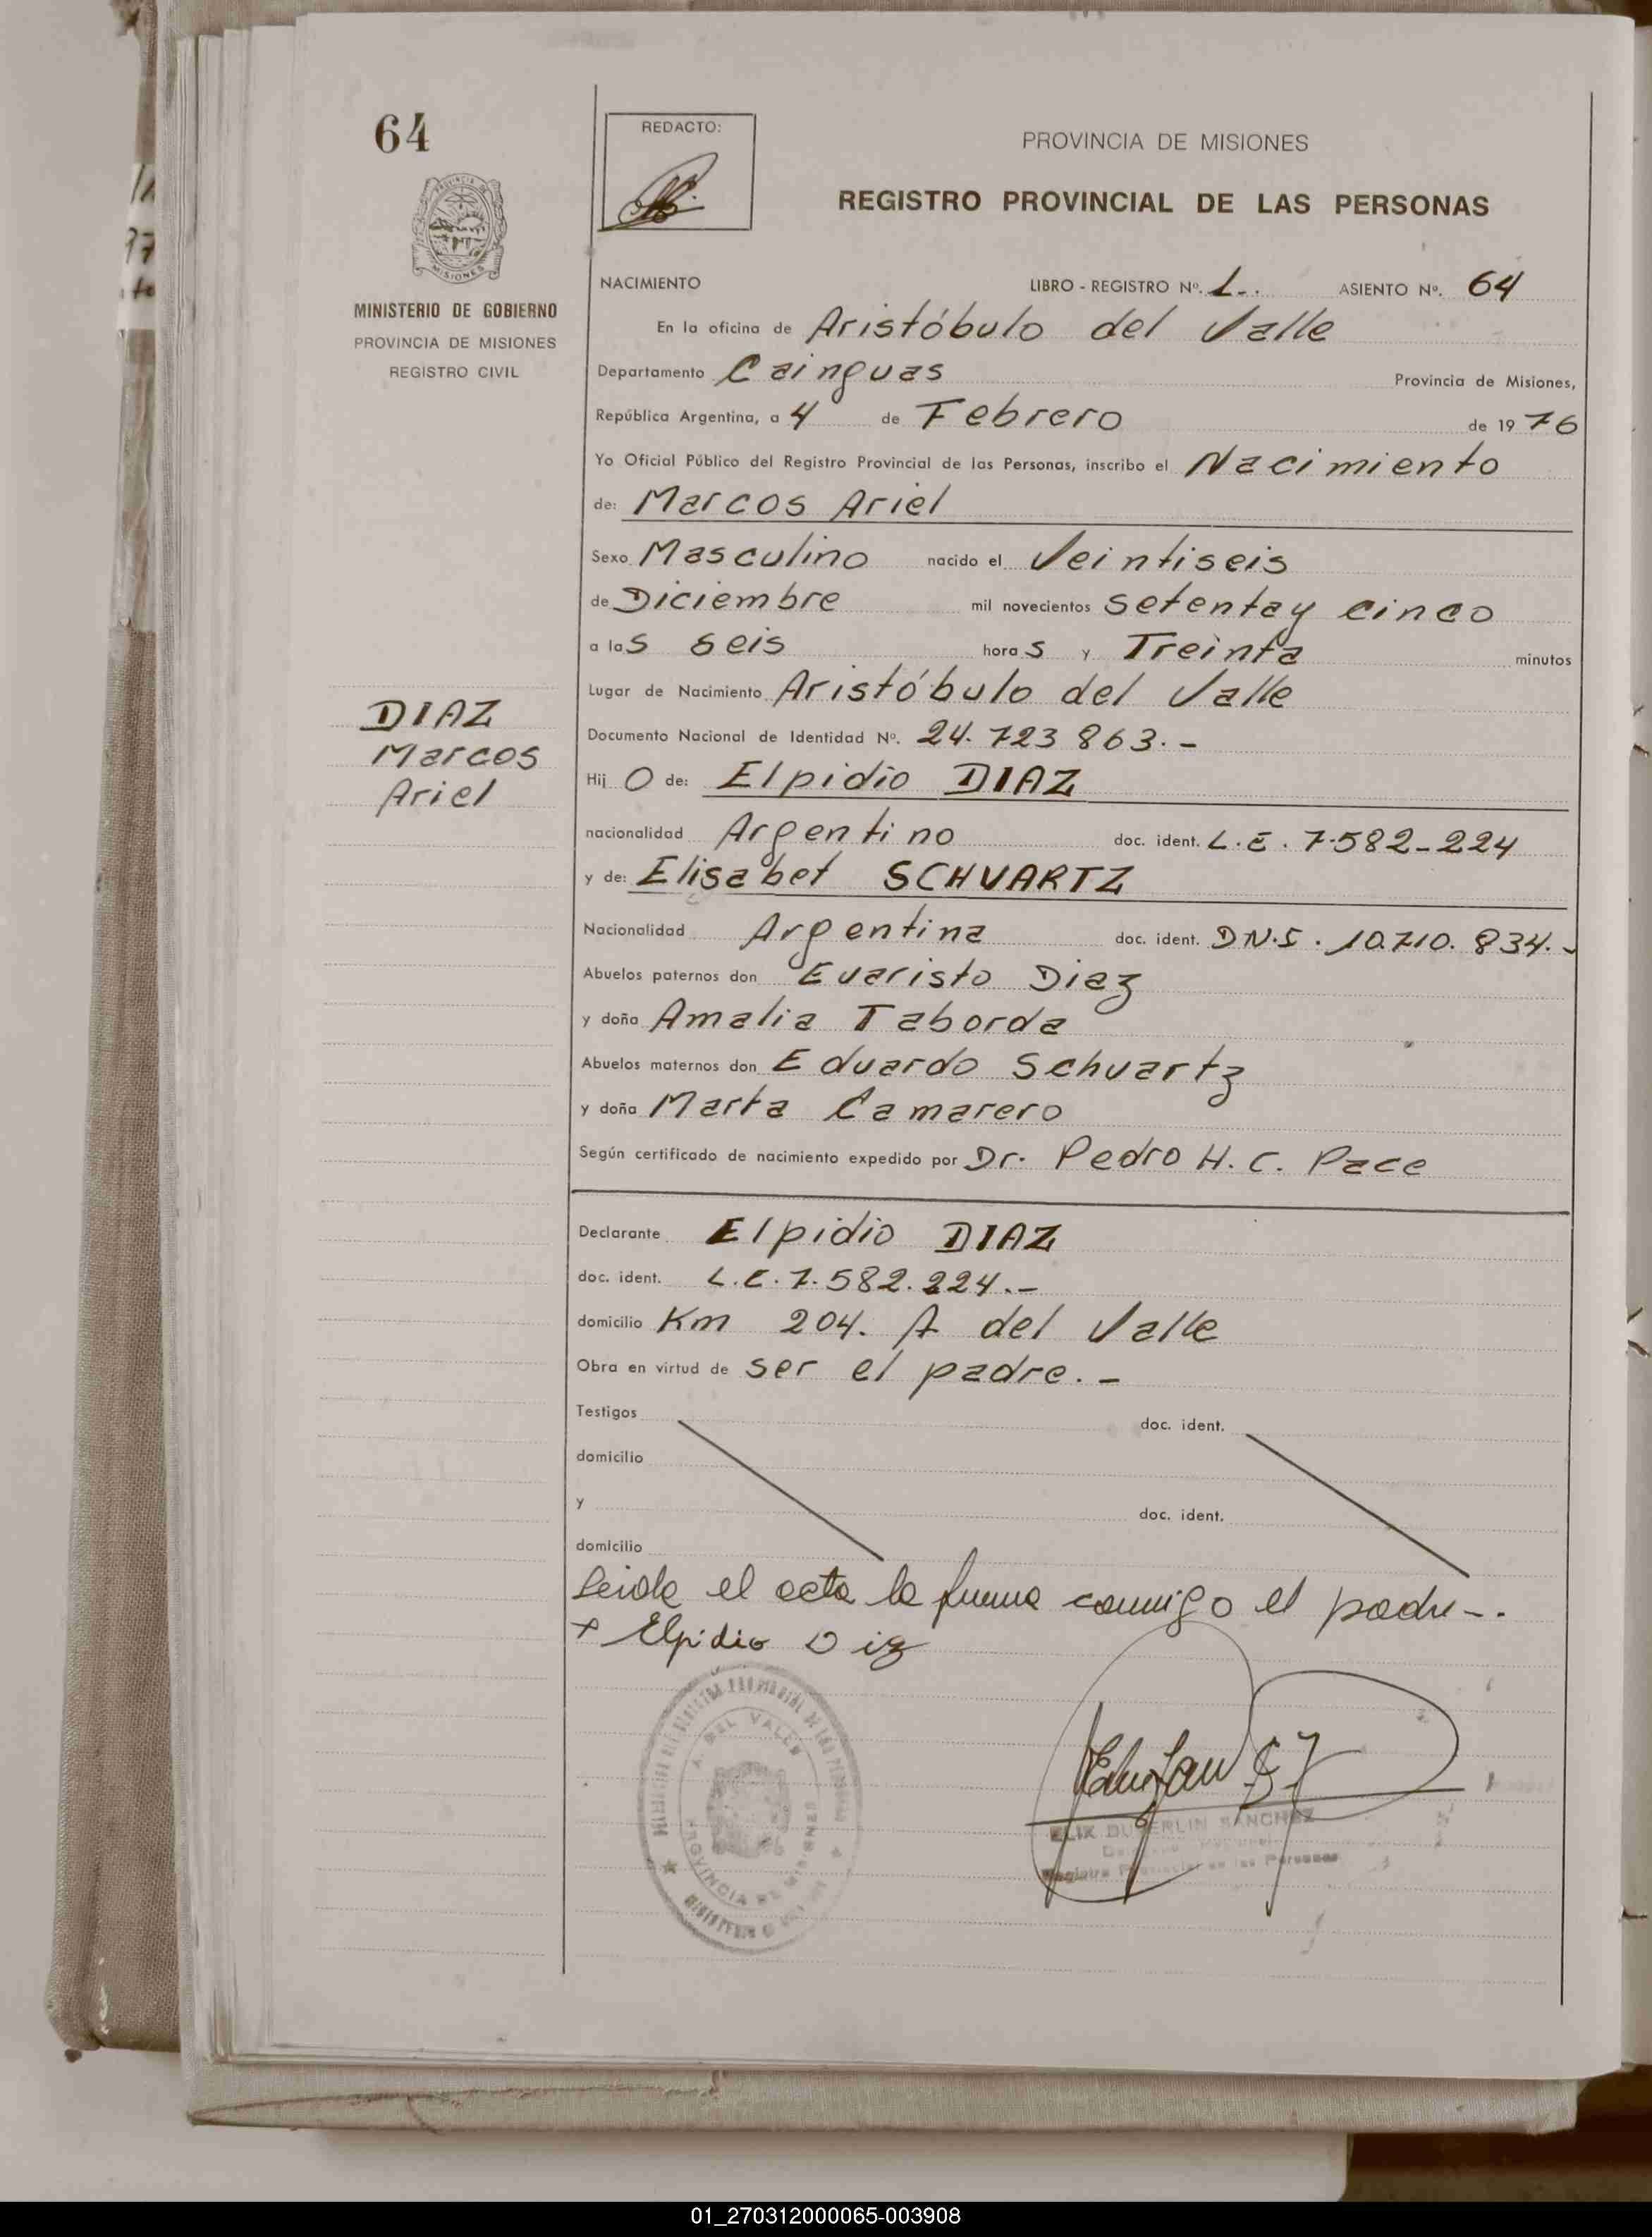 64
REDACTO:
PROVINCIA DE MISIONES
REGISTRO PROVINCIAL DE LAS PERSONAS
MISIONES
MINISTERIO DE GOBIERNO
PROVINCIA DE MISIONES
REGISTRO CIVIL
NACIMIENTO LIBRO - REGISTRO Nº. 1.. ASIENTO Nº. 64
En la oficina de Aristóbulo del Valle
Departamento Cainguas Provincia de Misiones,
República Argentina, a 4 de Febrero de 1976
Yo Oficial Público del Registro Provincial de las Personas, inscribo el Nacimiento
de: Marcos Ariel
Sexo Masculino nacido el Veintiseis
de Diciembre mil novecientos setenta y cinco
a las seis horas y Treinta minutos
Lugar de Nacimiento Aristóbulo del Valle
DIAZ
Marcos
Ariel
Documento Nacional de Identidad Nº. 24.723863.-
Hijo de: Elpidio DIAZ
nacionalidad Argentino doc. ident. L.E. 7.582-224
y de: Elisabet SCHVARTZ
Nacionalidad Argentina doc. ident. DN.I. 10.710.834.-
Abuelos paternos don Evaristo Diaz
y doña Amalia Taborda
Abuelos maternos don Eduardo Schvartz
y doña Marta Camarero
Según certificado de nacimiento expedido por Dr. Pedro H. C. Pace
Declarante Elpidio DIAZ
doc. ident. L.E. 7.582.224.-
domicilio Km 204. A del Valle
Obra en virtud de ser el padre.-
Testigos doc. ident.
domicilio
y doc. ident.
domicilio
Leida el acta la firma conmigo el padre-.
+ Elpidio Diaz
A. DEL VALLE
PROVINCIA DE MISIONES
SANCHEZ
Registro Provincial de las Personas
01_270312000065-003908